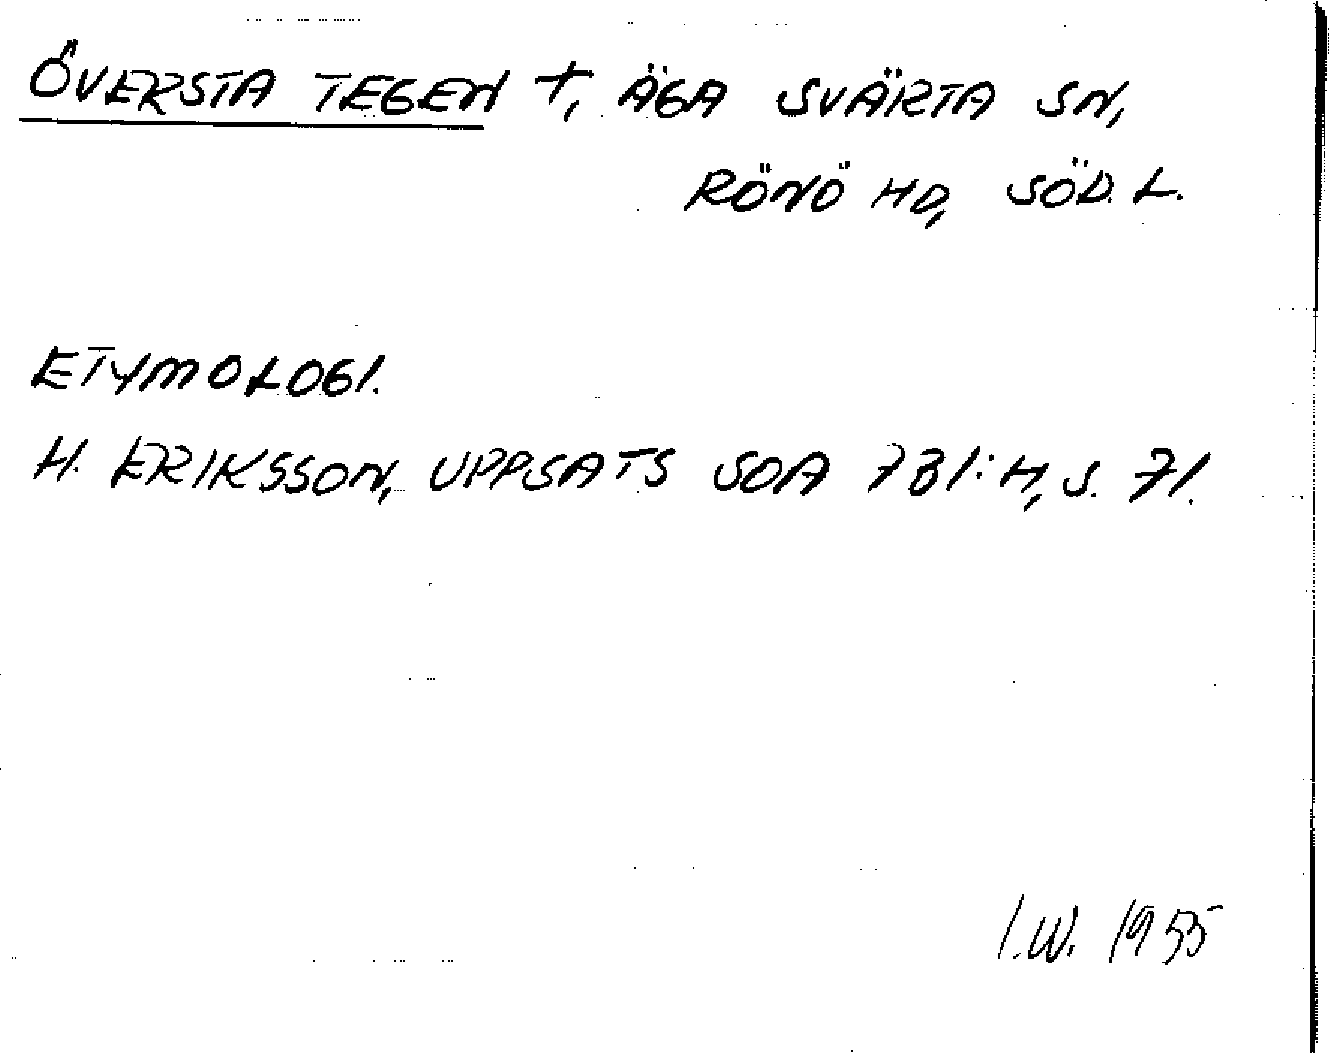 ÖVERSTA TEGEN †, ÄGA SVÄRTA SN,
RÖNÖ HD, SÖD. L.
ETYMOLOGI.
H. ERIKSSON, UPPSATS SOA 731:H, S. 71.
I.W. 1955